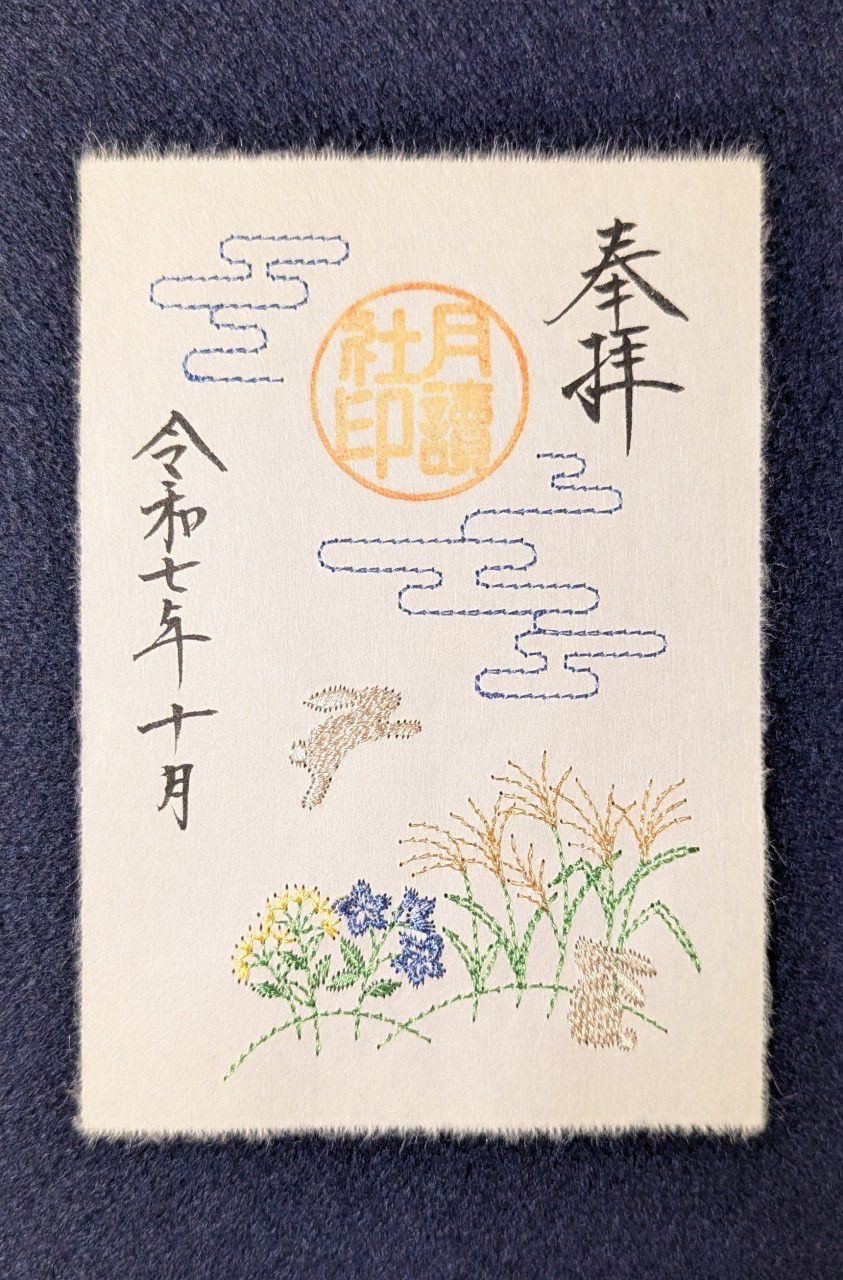 奉拝
月讀
社印
令和七年十月